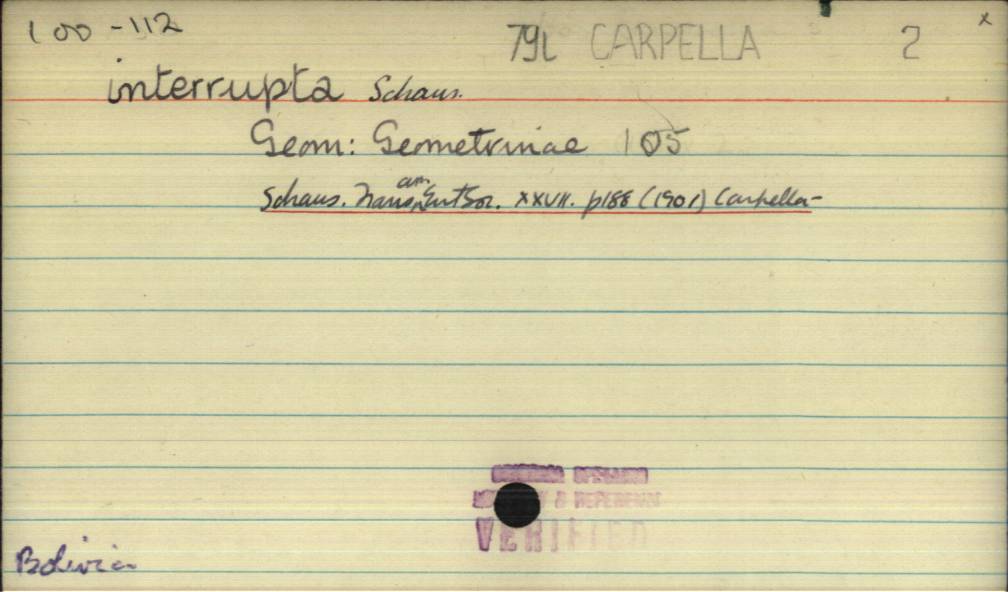 100-112 79L CARPELLA 2 x
interrupta Schaus.
Geom: Geometrinae 105
Schaus. Trans. am. Ent Soc. XXVII. p188 (1901) Carpella-
SPELLING
& REFERENCE
VERIFIED
Bolivia